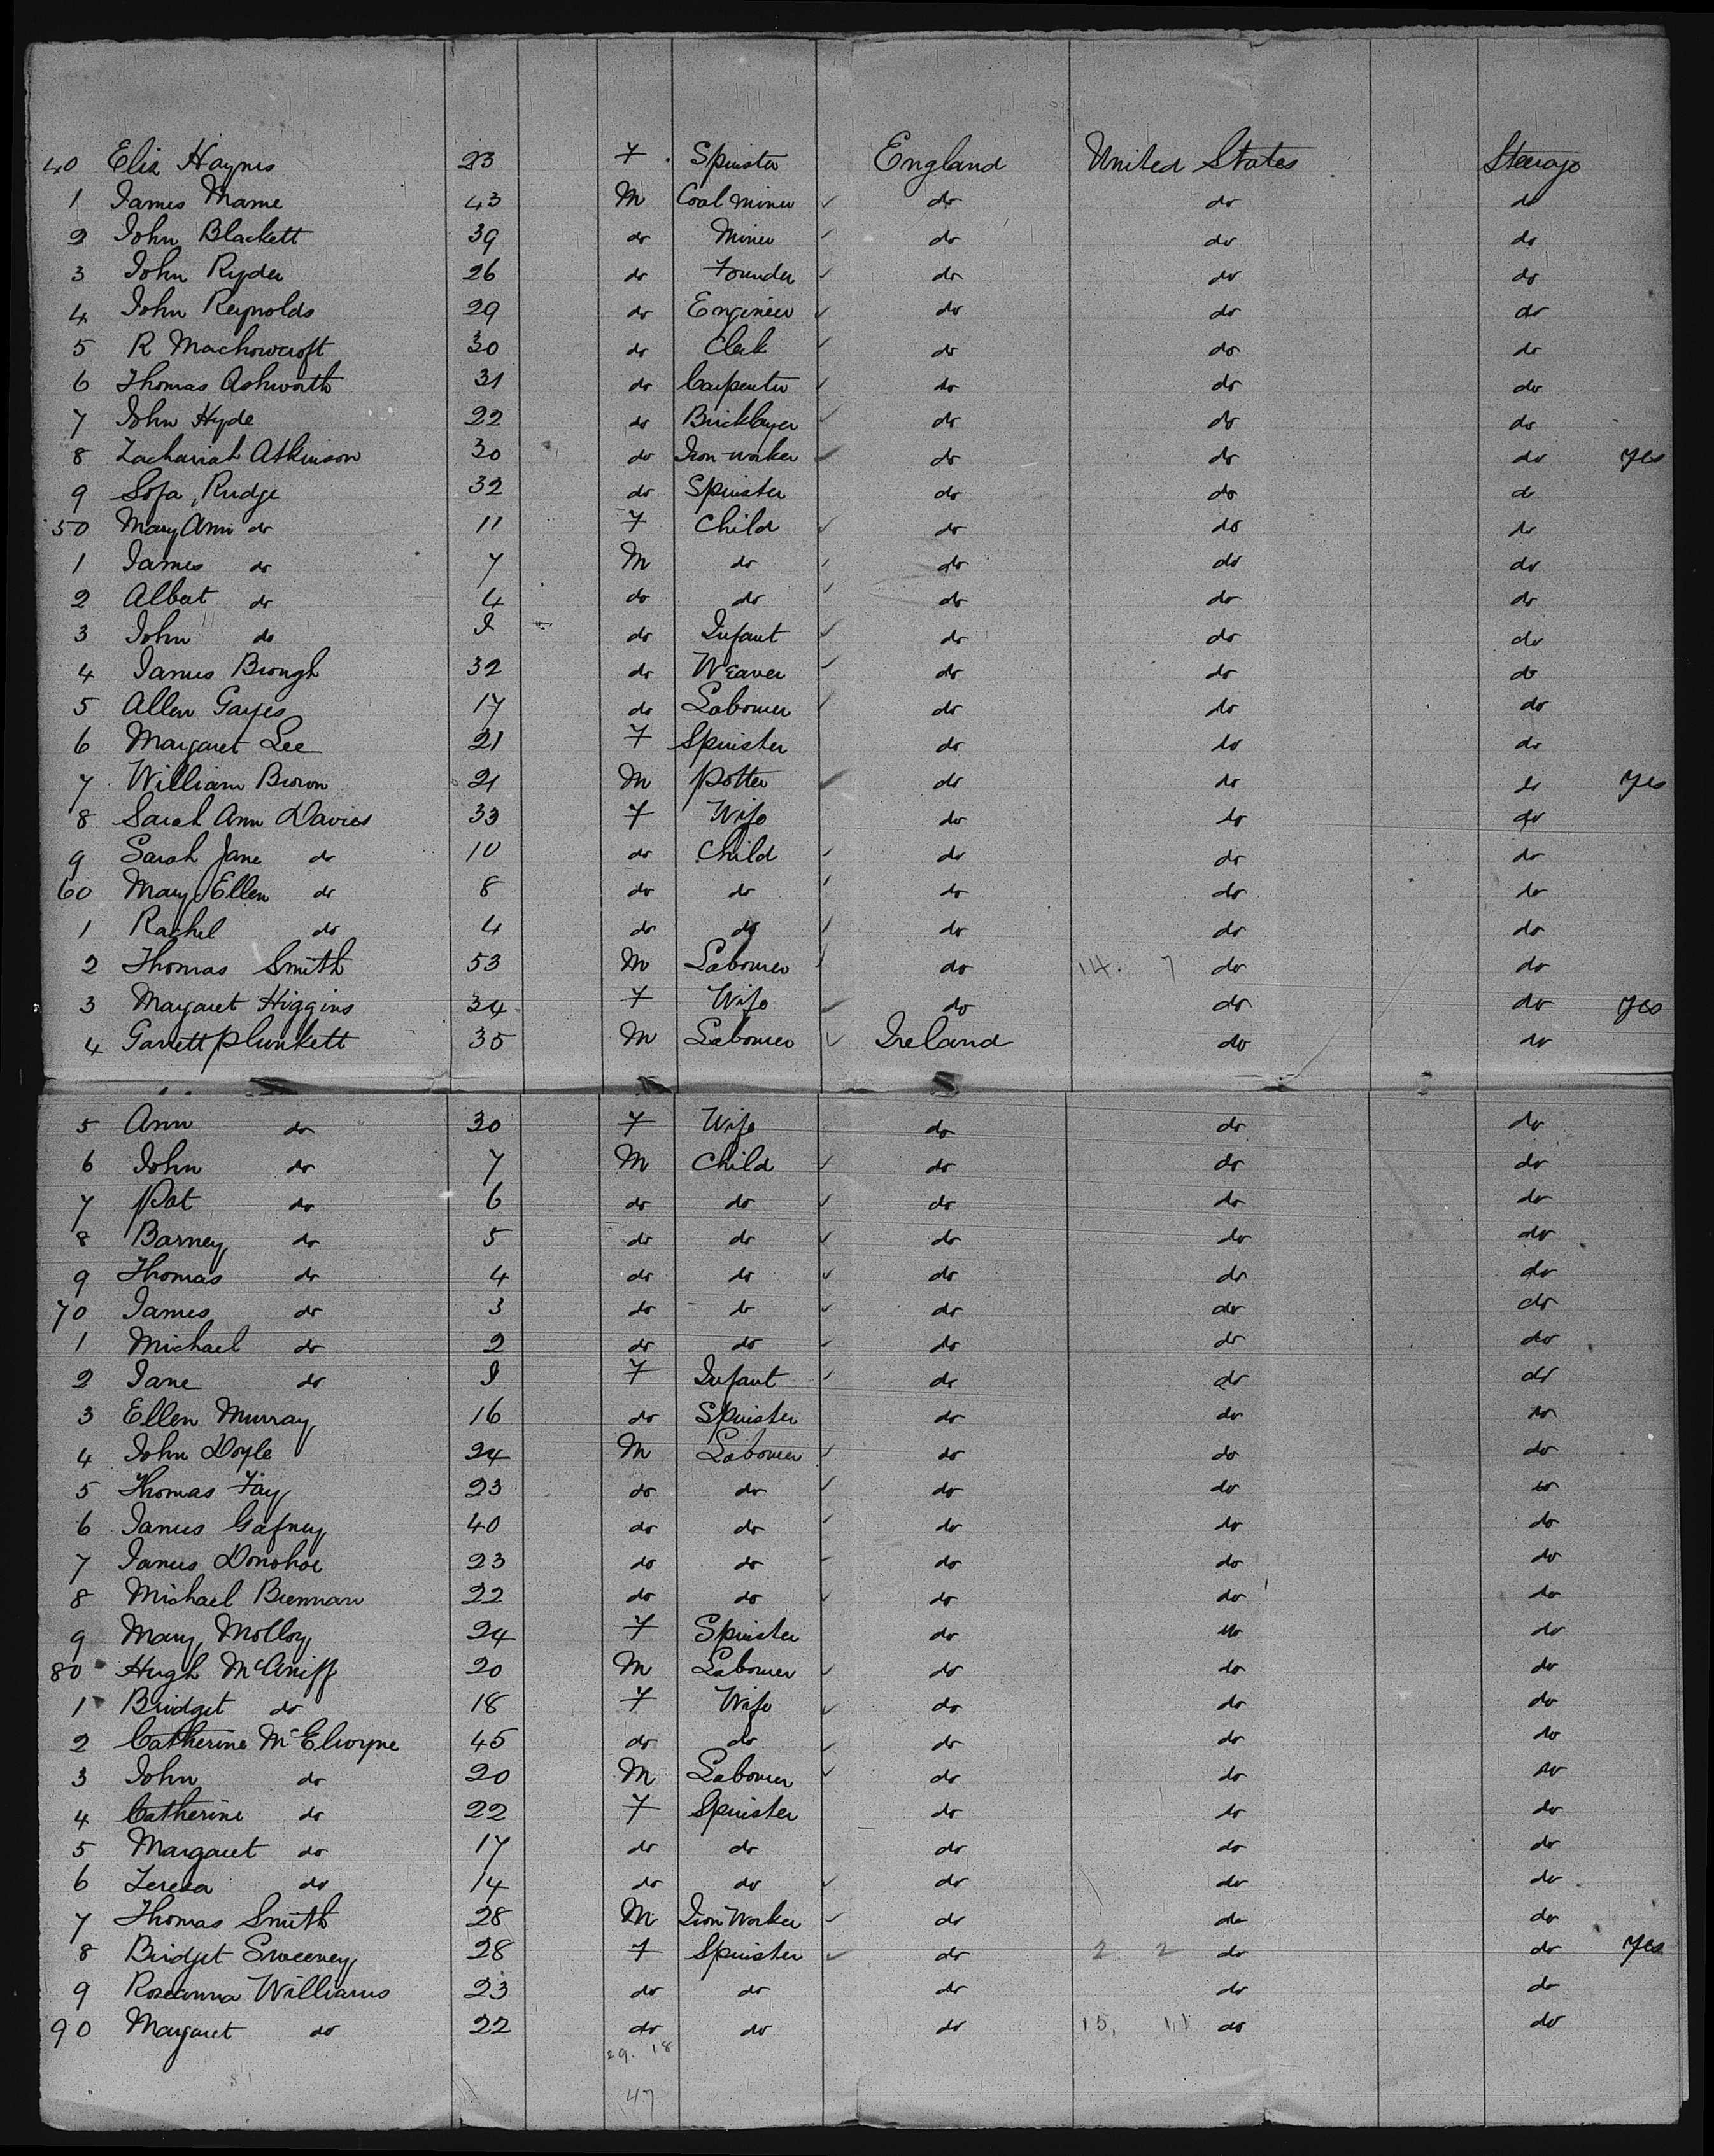 40 Eliz Haynes 23 F Spinster England United States Steerage
1 James Mame 43 M Coal miner do do do
2 John Blackett 39 do Miner do do do
3 John Ryder 26 do Founder do do do
4 John Reynolds 29 do Engineer do do do
5 R 30 do Clerk do do do
6 Thomas Ashworth 31 do Carpenter do do do
7 John Hyde 22 do Bricklayer do do do
8 Zachariah Atkinson 30 do Iron-worker do do do yes
9 Sofa Rudge 32 do Spinster do do do
50 Mary Ann do 11 F Child do do do
1 James do 7 M do do do do
2 Albert do 4 do do do do do
3 John do I do Infant do do do
4 James Brough 32 do Weaver do do do
5 Allen Gayes 17 do Labourer do do do
6 Margaret Lee 21 F Spinster do do do
7 William Brown 21 M Potter do do do yes
8 Sarah Ann Davies 33 F Wife do do do
9 Sarah Jane do 10 do Child do do do
60 Mary Ellen do 8 do do do do do
1 Rachel do 4 do do do do do
2 Thomas Smith 53 M Labourer do 14. 7 do do
3 Margaret Higgins 34 F Wife do do do yes
4 Garrett Plunkett 35 M Labourer Ireland do do
5 Ann do 30 F Wife do do do
6 John do 7 M Child do do do
7 Pat do 6 do do do do do
8 Barney do 5 do do do do do
9 Thomas do 4 do do do do do
70 James do 3 do do do do do
1 Michael do 2 do do do do do
2 Jane do I F Infant do do do
3 Ellen Murray 16 do Spinster do do do
4 John Doyle 24 M Labourer do do do
5 Thomas Fay 23 do do do do do
6 James Gafney 40 do do do do do
7 James Donohoe 23 do do do do do
8 Michael Brennan 22 do do do do do
9 Mary Molloy 24 F Spinster do do do
80 Hugh McAniff 20 M Labourer do do do
1 Bridget do 18 F Wife do do do
2 Catherine McElwyne 45 do do do do do
3 John do 20 M Labourer do do do
4 Catherine do 22 F Spinster do do do
5 Margaret do 17 do do do do do
6 Teresa do 14 do do do do do
7 Thomas Smith 28 M Iron Worker do do do
8 Bridget Sweeney 28 F Spinster do 2 2 do do yes
9 Roseanna Williams 23 do do do do do
90 Margaret do 22 do do do 15, 11 do do
29. 18
81
47